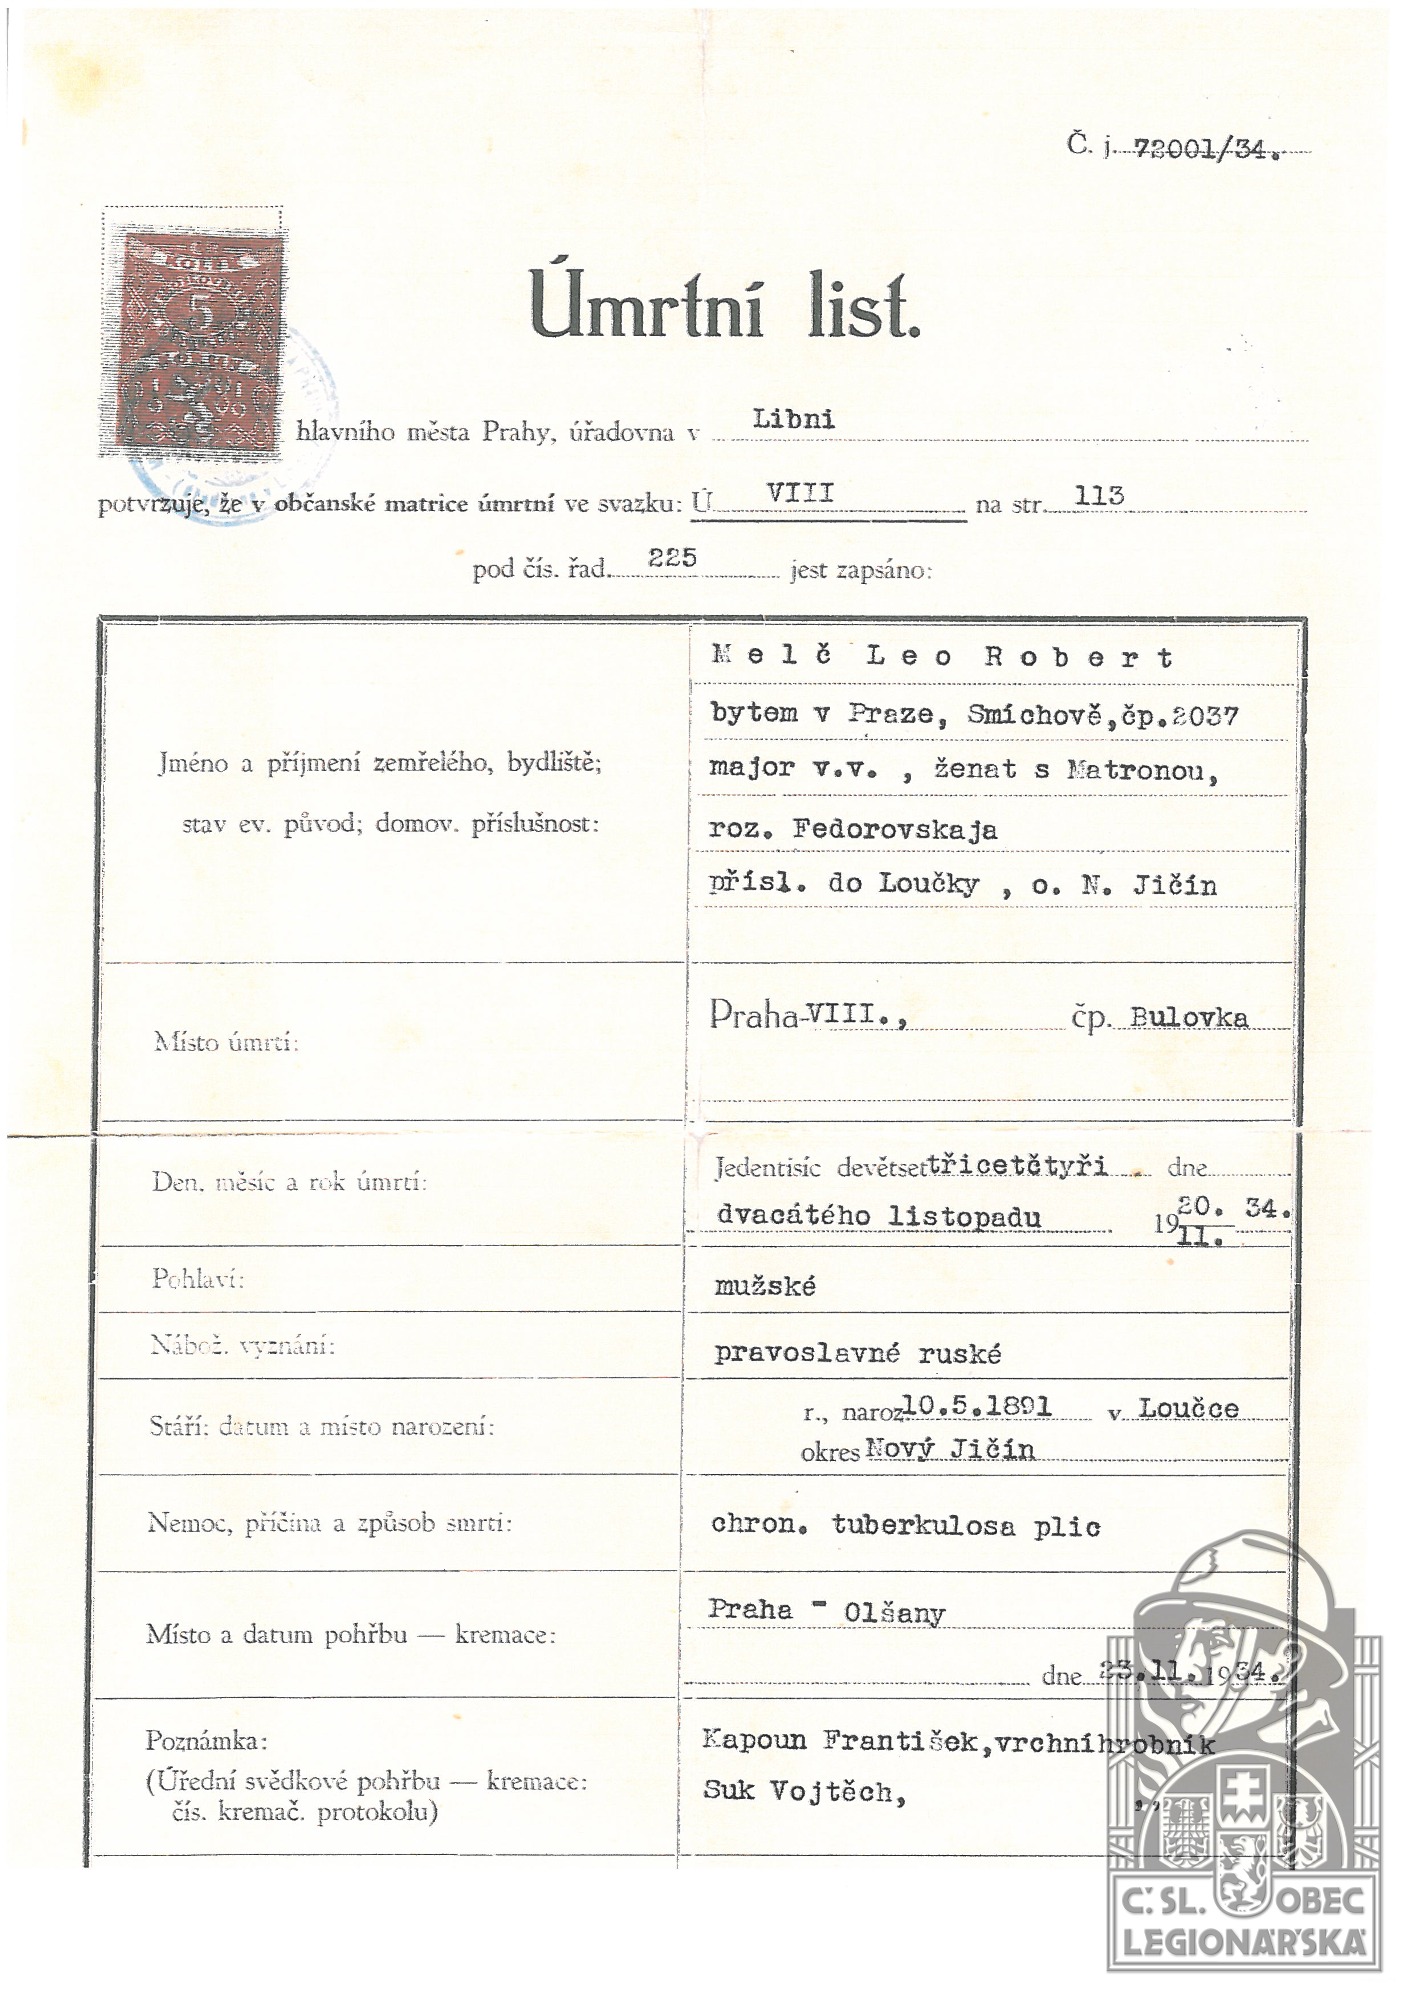 Č. j. 72001/34.
5
Úmrtní list.
hlavního města Prahy, úřadovna v Libni
potvrzuje, že v občanské matrice úmrtní ve svazku: Ú VIII na str. 113
pod čís. řad. 225 jest zapsáno:
Jméno a příjmení zemřelého, bydliště;
stav ev. původ; domov. příslušnost:
Melč Leo Robert
bytem v Praze, Smíchově,čp.2037
major v.v. , ženat s Matronou,
roz. Fedorovskaja
přísl. do Loučky , o. N. Jičín
Místo úmrtí:
Praha-VIII., čp. Bulovka
Den, měsíc a rok úmrtí:
Jedentisíc devětset třicetčtyři dne
dvacátého listopadu 19 20. 34.
11.
Pohlaví:
mužské
Nábož. vyznání:
pravoslavné ruské
Stáří: datum a místo narození:
r., naroz. 10.5.1891 v Loučce
okres Nový Jičín
Nemoc, příčina a způsob smrti:
chron. tuberkulosa plic
Místo a datum pohřbu — kremace:
Praha - Olšany
dne 23.11. 1934.
Poznámka:
(Úřední svědkové pohřbu — kremace:
čís. kremač. protokolu)
Kapoun František,vrchníhrobník
Suk Vojtěch, ,,
Č.SL. OBEC
LEGIONÁŘSKÁ